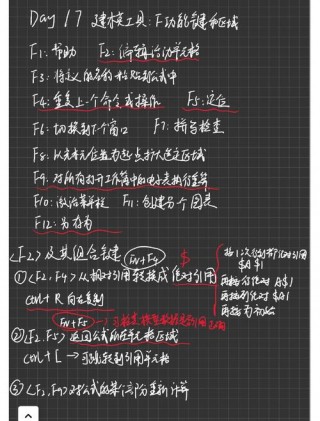 Day 17 建模工具:F功能键和区域
F1:帮助 F2:编辑活动单元格
F3:将定义的名称粘贴到公式中
F4:重复上一个命令或操作 F5:定位
F6:切换到下个窗口 F7:拼写检查
F8:从单元位置为起点扩大选定区域
F9:对所有打开工作簿中的电子表执行重算
F10:激活菜单栏 F11:创建另个图表
F12:另存有
<F2>及其组合键 Fn+F4
①<F2,F4>从相对引用转换成绝对引用 $
按1次行列都绝对引用 $A$1
再按行绝对 A$1
再按列绝对 $A1
再按为初始
ctrl+R 向右复制
Fn+F5
②<F2,F5>返回公式所在单元格区域
ctrl+[ → 可跳转到引用单元格
③<F2,F9>对公式的某个部分重新计算